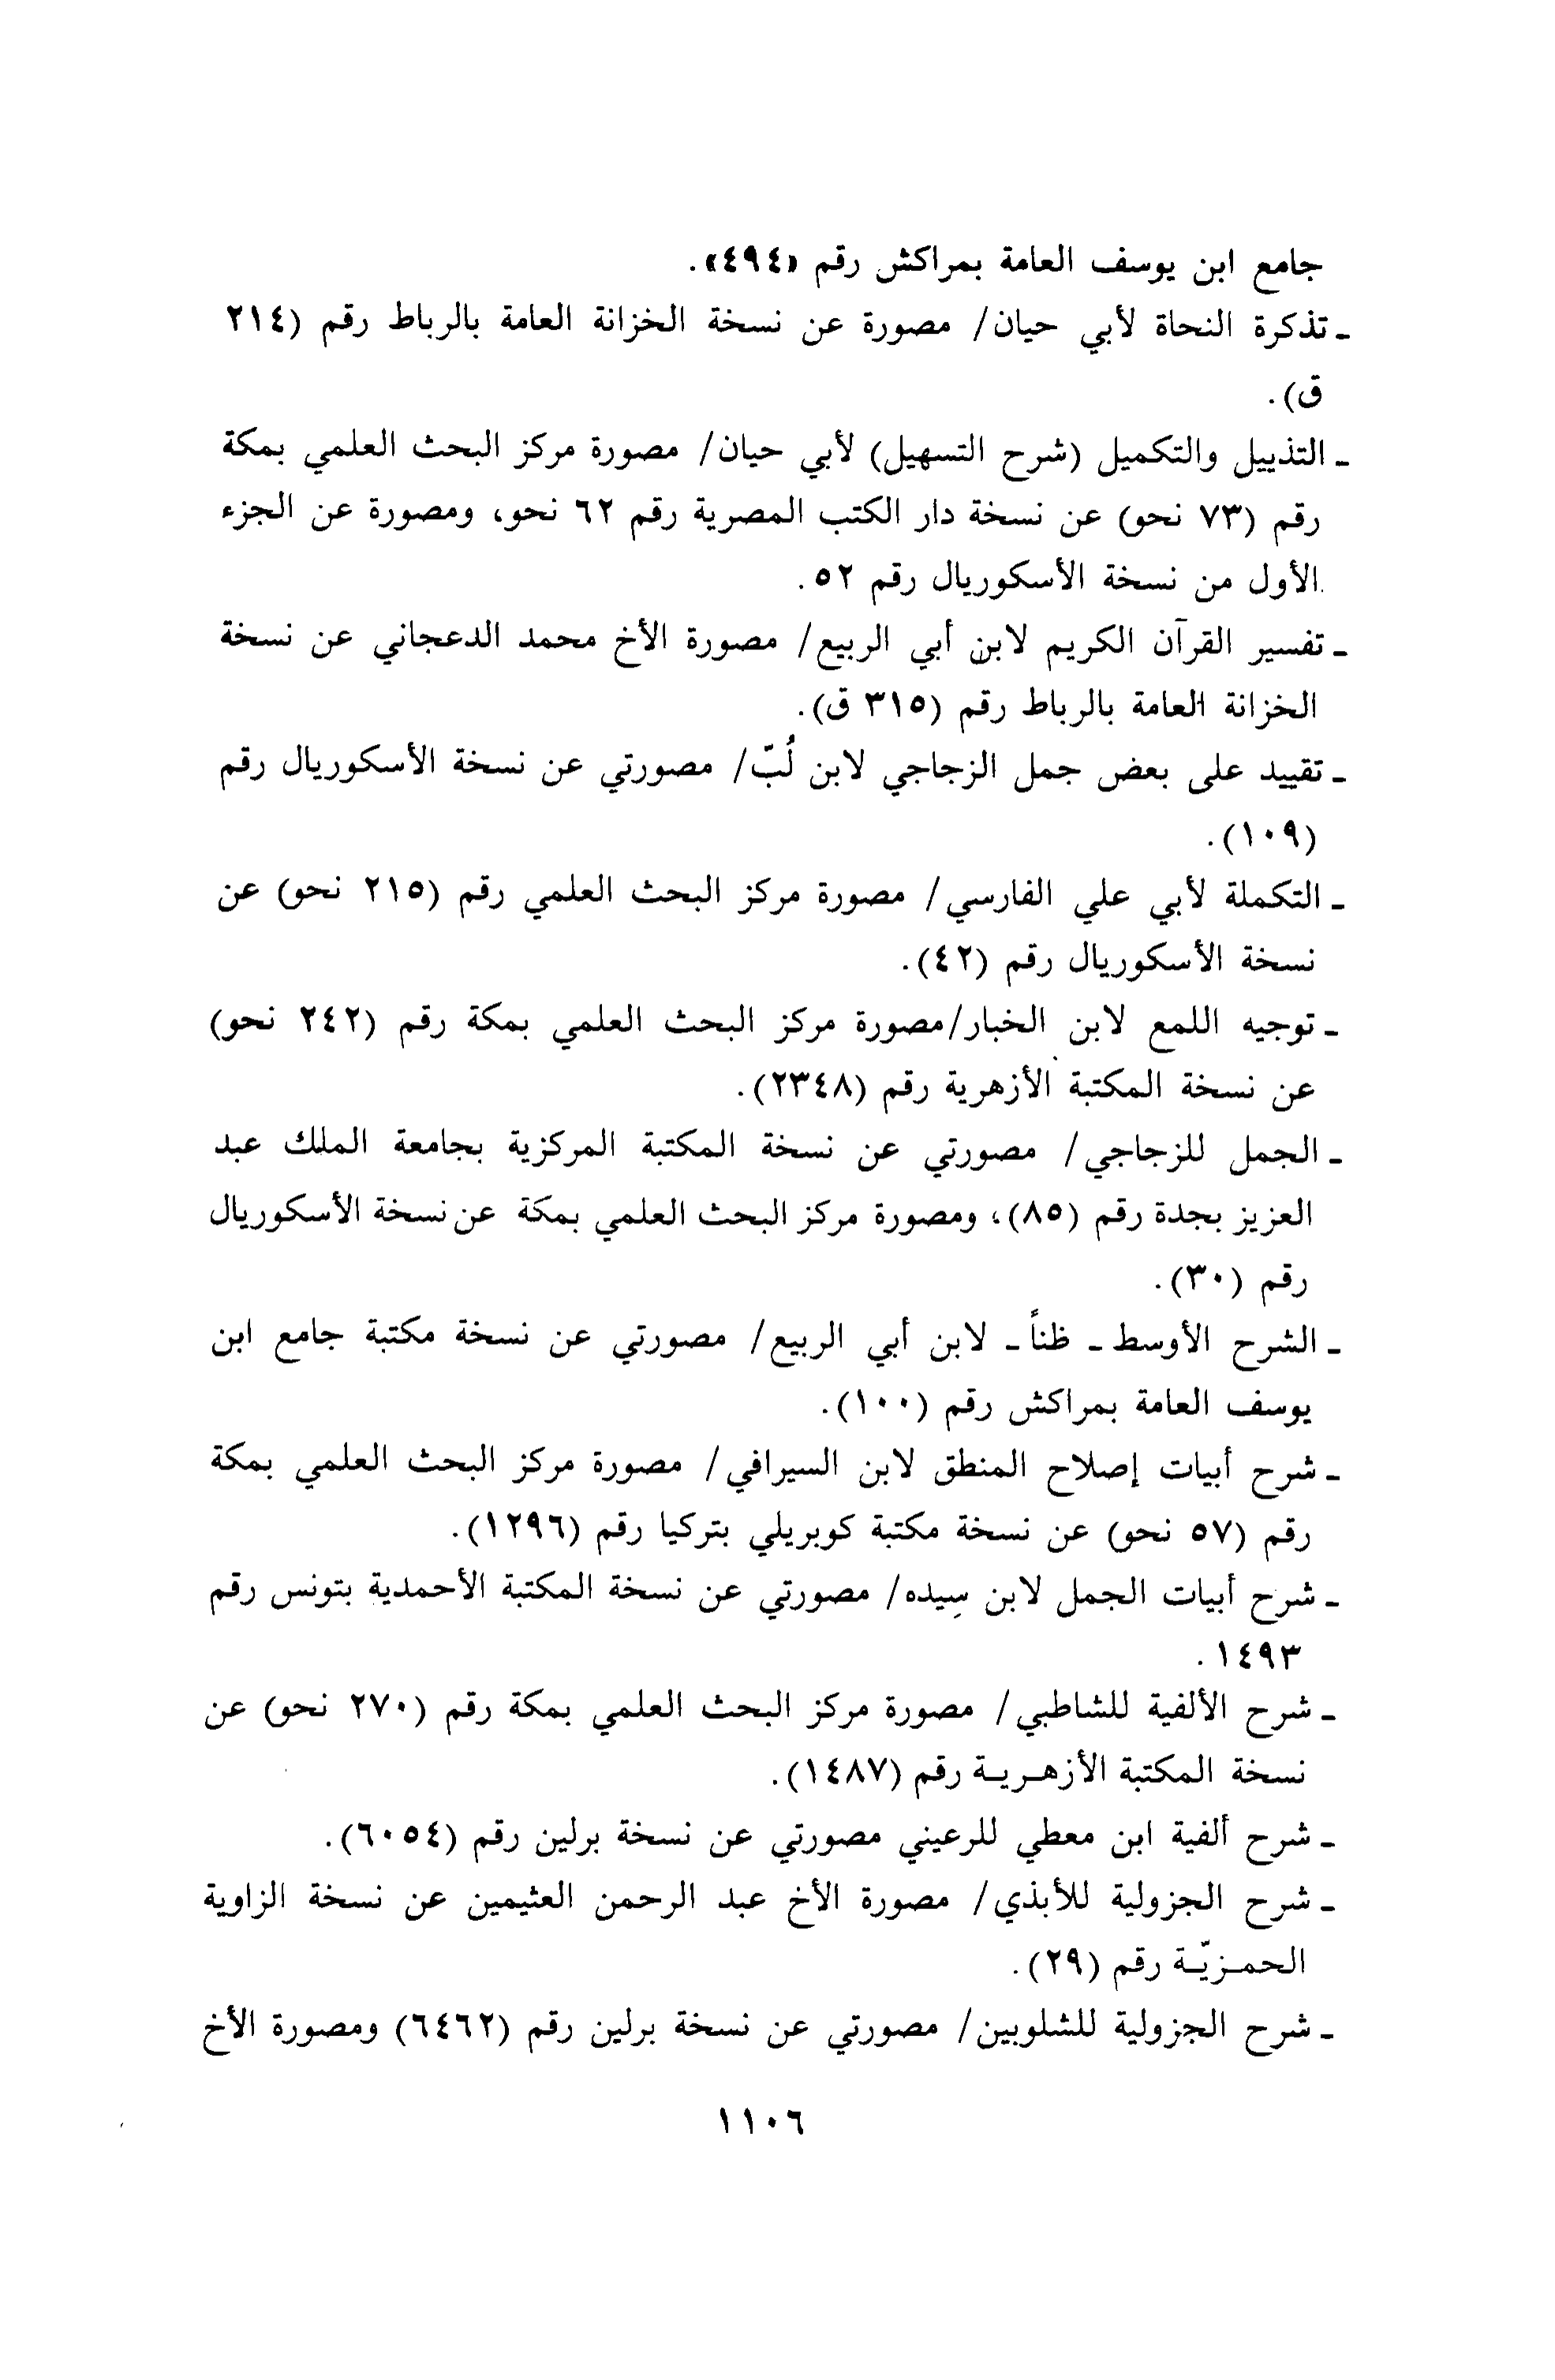 جامع ابن يوسف العامة بمراكش رقم «٤٩٤».
ـ تذكرة النحاة لأبي حيان/ مصورة عن نسخة الخزانة العامة بالرباط رقم (٢١٤
ق).
ـ التذييل والتكميل (شرح التسهيل) لأبي حيان/ مصورة مركز البحث العلمي بمكة
رقم (٧٣ نحو) عن نسخة دار الكتب المصرية رقم ٦٢ نحو، ومصورة عن الجزء
الأول من نسخة الأسكوريال رقم ٥٢.
ـ تفسير القرآن الكريم لابن أبي الربيع/ مصورة الأخ محمد الدعجاني عن نسخة
الخزانة العامة بالرباط رقم (٣١٥ ق).
ـ تقييد على بعض جمل الزجاجي لابن لُبّ/ مصورتي عن نسخة الأسكوريال رقم
(١٠٩).
ـ التكملة لأبي علي الفارسي/ مصورة مركز البحث العلمي رقم (٢١٥ نحو) عن
نسخة الأسكوريال رقم (٤٢).
ـ توجيه اللمع لابن الخباز/مصورة مركز البحث العلمي بمكة رقم (٢٤٢ نحو)
عن نسخة المكتبة الأزهرية رقم (٢٣٤٨).
ـ الجمل للزجاجي/ مصورتي عن نسخة المكتبة المركزية بجامعة الملك عبد
العزيز بجدة رقم (٨٥)، ومصورة مركز البحث العلمي بمكة عن نسخة الأسكوريال
رقم (٣٠).
ـ الشرح الأوسط ـ ظناً ـ لابن أبي الربيع/ مصورتي عن نسخة مكتبة جامع ابن
يوسف العامة بمراكش رقم (١٠٠).
ـ شرح أبيات إصلاح المنطق لابن السيرافي/ مصورة مركز البحث العلمي بمكة
رقم (٥٧ نحو) عن نسخة مكتبة كوبريلي بتركيا رقم (١٢٩٦).
ـ شرح أبيات الجمل لابن سِيده/ مصورتي عن نسخة المكتبة الأحمدية بتونس رقم
١٤٩٣.
ـ شرح الألفية للشاطبي/ مصورة مركز البحث العلمي بمكة رقم (٢٧٠ نحو) عن
نسخة المكتبة الأزهـريـة رقم (١٤٨٧).
ـ شرح ألفية ابن معطي للرعيني مصورتي عن نسخة برلين رقم (٦٠٥٤).
ـ شرح الجزولية للأبذي/ مصورة الأخ عبد الرحمن العثيمين عن نسخة الزاوية
الحمـزيّـة رقم (٢٩).
ـ شرح الجزولية للشلوبين/ مصورتي عن نسخة برلين رقم (٦٤٦٢) ومصورة الأخ
١١٠٦